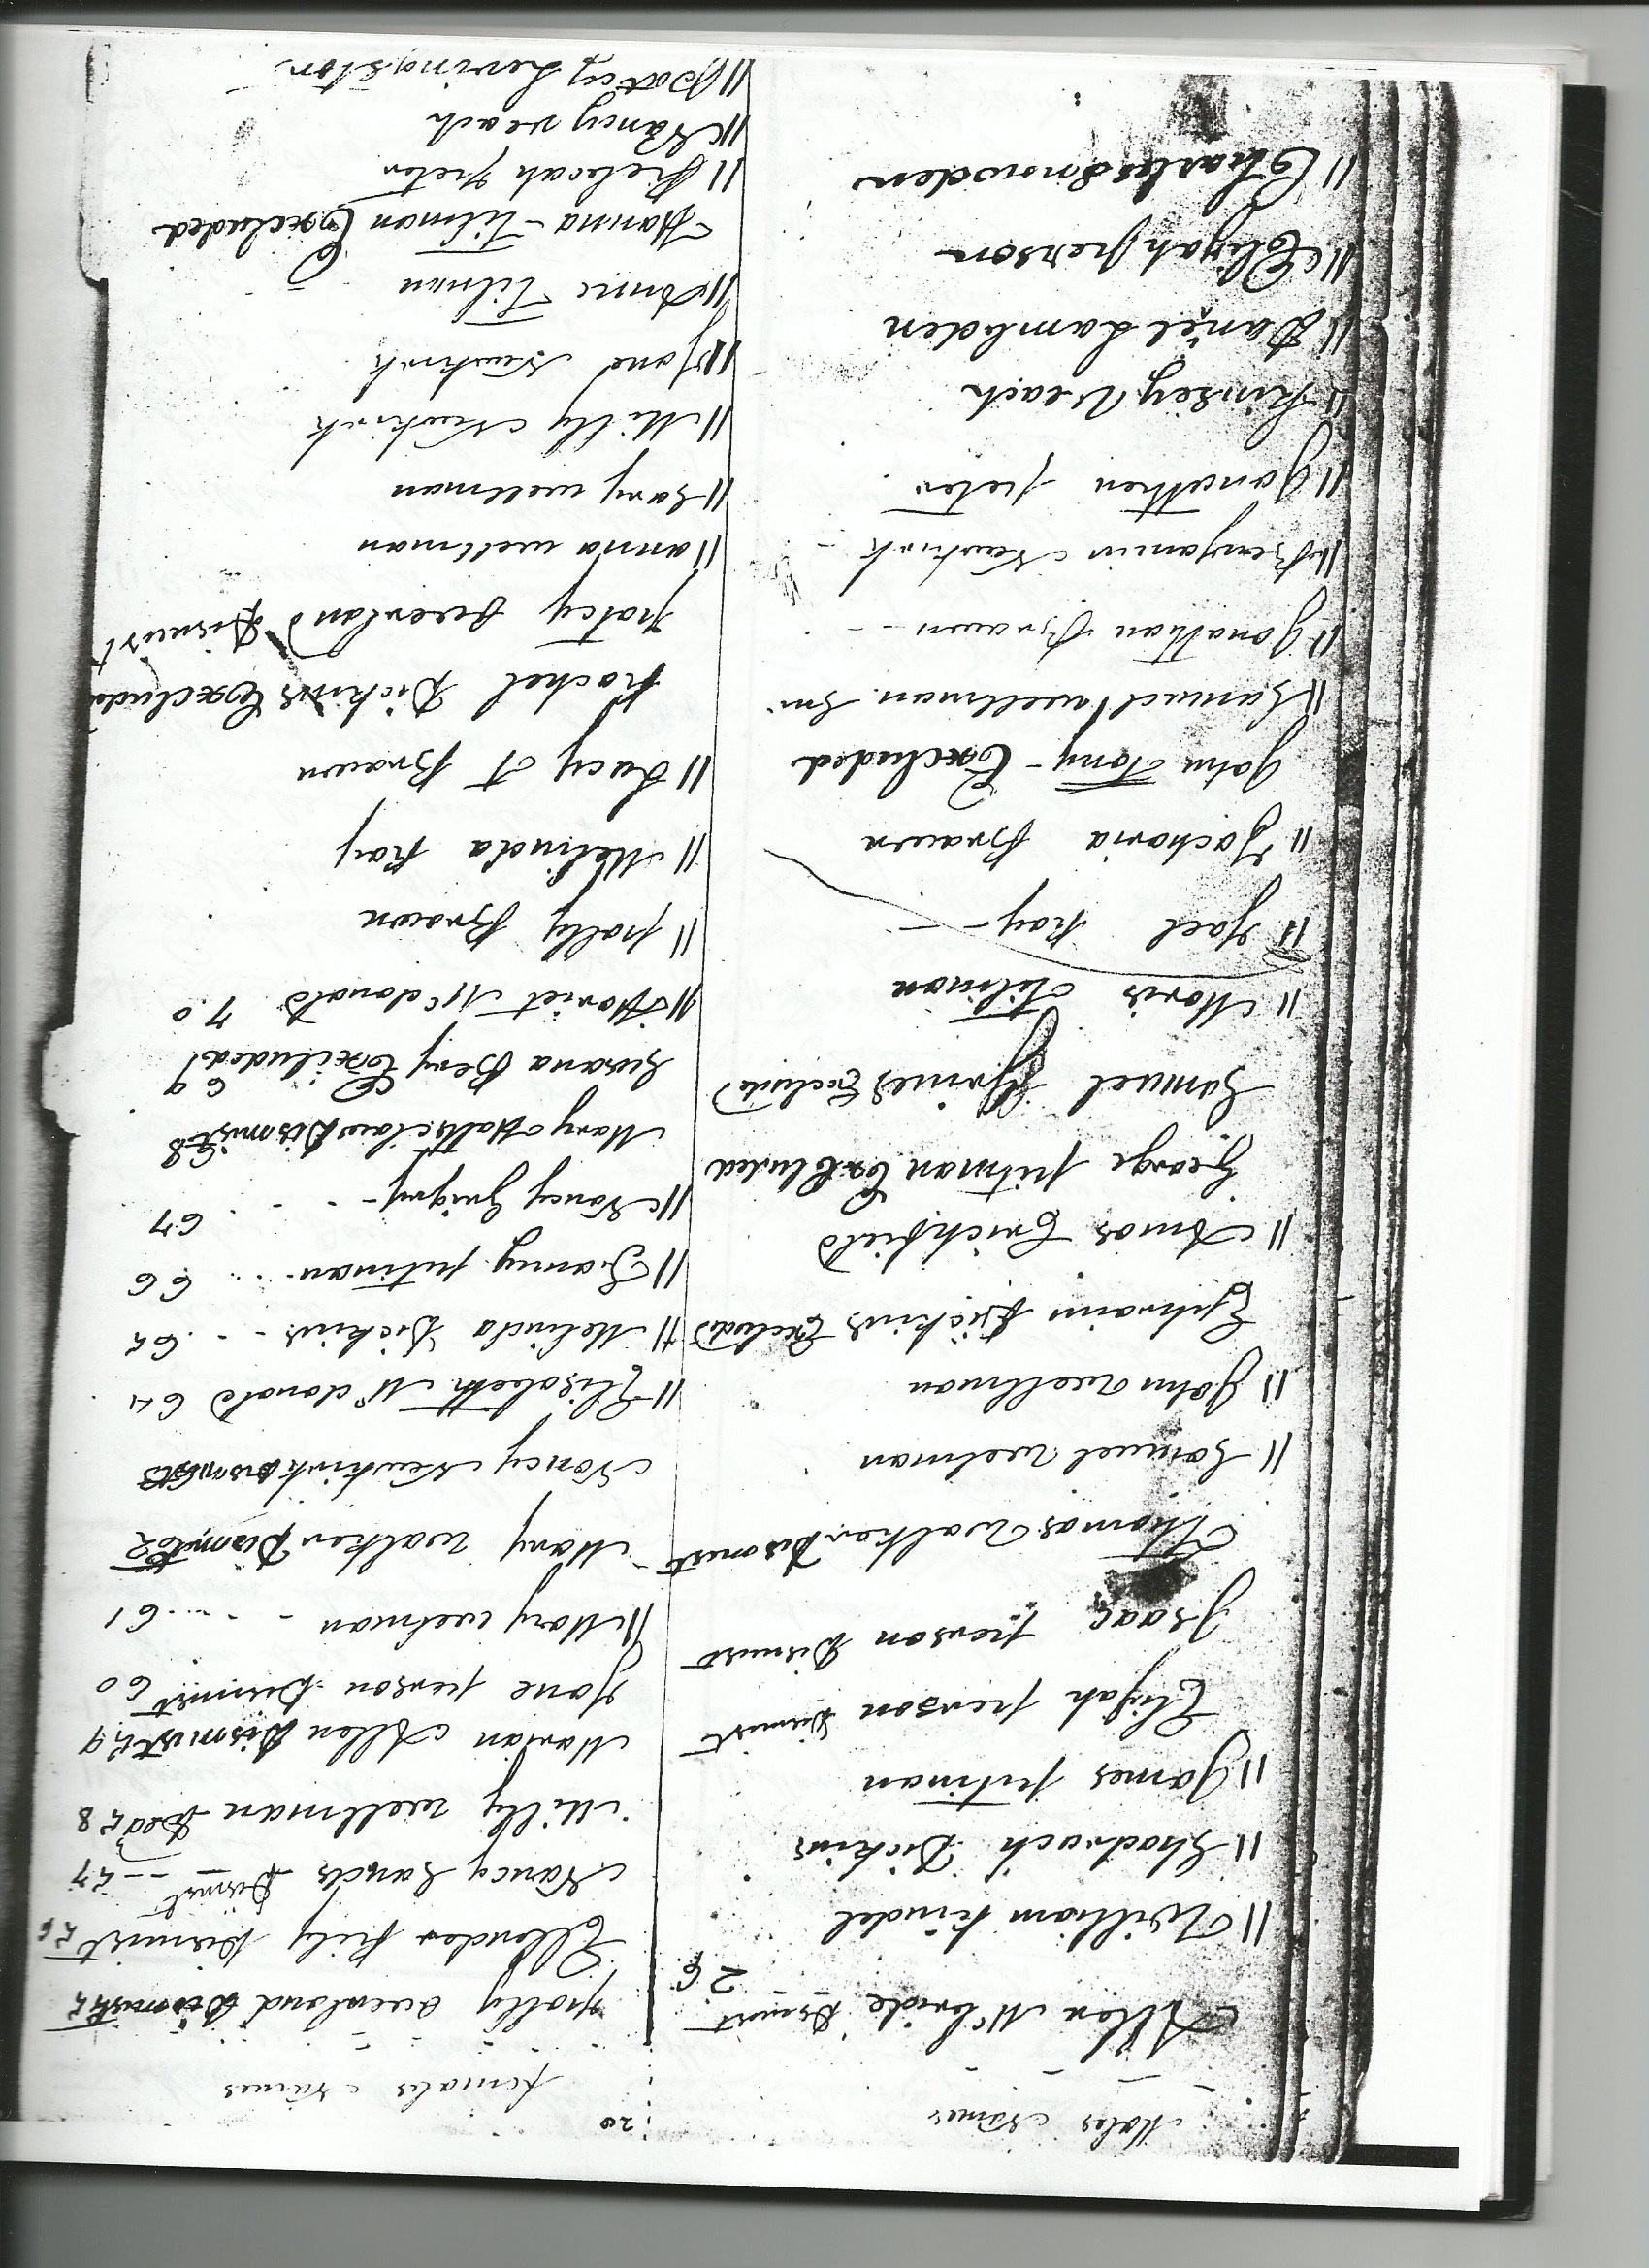 Males Names
Allen Mcbride Dismist 26
" William kindel
" Shadrach Dickins
" James putman
Elijah pierson Dismist
Isaac pierson Dismist
Thomas Walker Dismist
" Samuel Welman
" John Wellman
Ephraim Dickins Exclud
" Amos Crichfield
George pitman Excluded
Samuel Exclude
" Moris Tilman
" Joel Ray
" Zacharia Brawn
John Tony - Excluded
" Samuel wellman Snr
" Jonathan Brawn
" Benjamin Newkirk
" Jonathen peter
" Kinsey Veach
" Daniel Lambden
" Elijah pierson
" Charles Snowden
20
females Names
polly overland Dismist 55
Ellender Kily Dismist 56
Nancy Sands Dismist 57
Milly wellman Dead 58
Marian Allen Dismist 59
Jane pierson Dismist 60
" Mary welman 61
Mary Walker Dismist 62
Nancy Newkirk Dismist 63
" Elisabeth Mcdonald 64
" Melinda Dickins 65
" Fanny putman 66
" Nancy 67
Mary Hattsclaw Dismist 68
Susana Bery Excluded 69
" Hariet Mcdonald 70
" polly Brawn
" Melinda Ray
" Lucy A Brawn
Rachel Dickins Exclude
patcy overland Dismist
" anna wellman
" Sary wellman
" Milly Newkirk
" Jane Newkirk
" Anne Tilman
Hanna Tilman Excluded
" Rebecah peter
" Nancy veach
" patcy Levingston